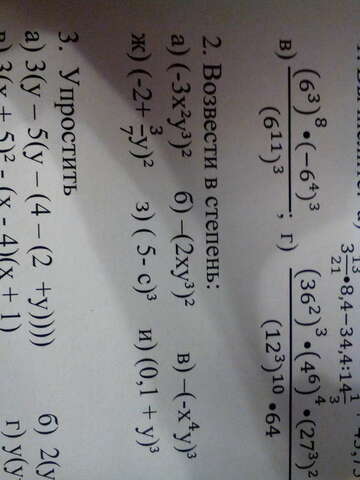 3 13/21 • 8,4 – 34,4:14 1/3
в) (6³)⁸ • (–6⁴)³ / (6¹¹)³ ; г) (36²)³ • (4⁶)⁴ • (27³)² / (12³)¹⁰ • 64
2. Возвести в степень:
а) (-3x²y³)² б) –(2xy³)² в) –(-x⁴y)³
ж) (-2+ 3/7 y)² з) ( 5- c)³ и) (0,1 + y)³
3. Упростить
а) 3(y – 5(y – (4 – (2 +y)))) б) 2(y
в) 3(x + 5)² - (x - 4)(x + 1) г) y(y